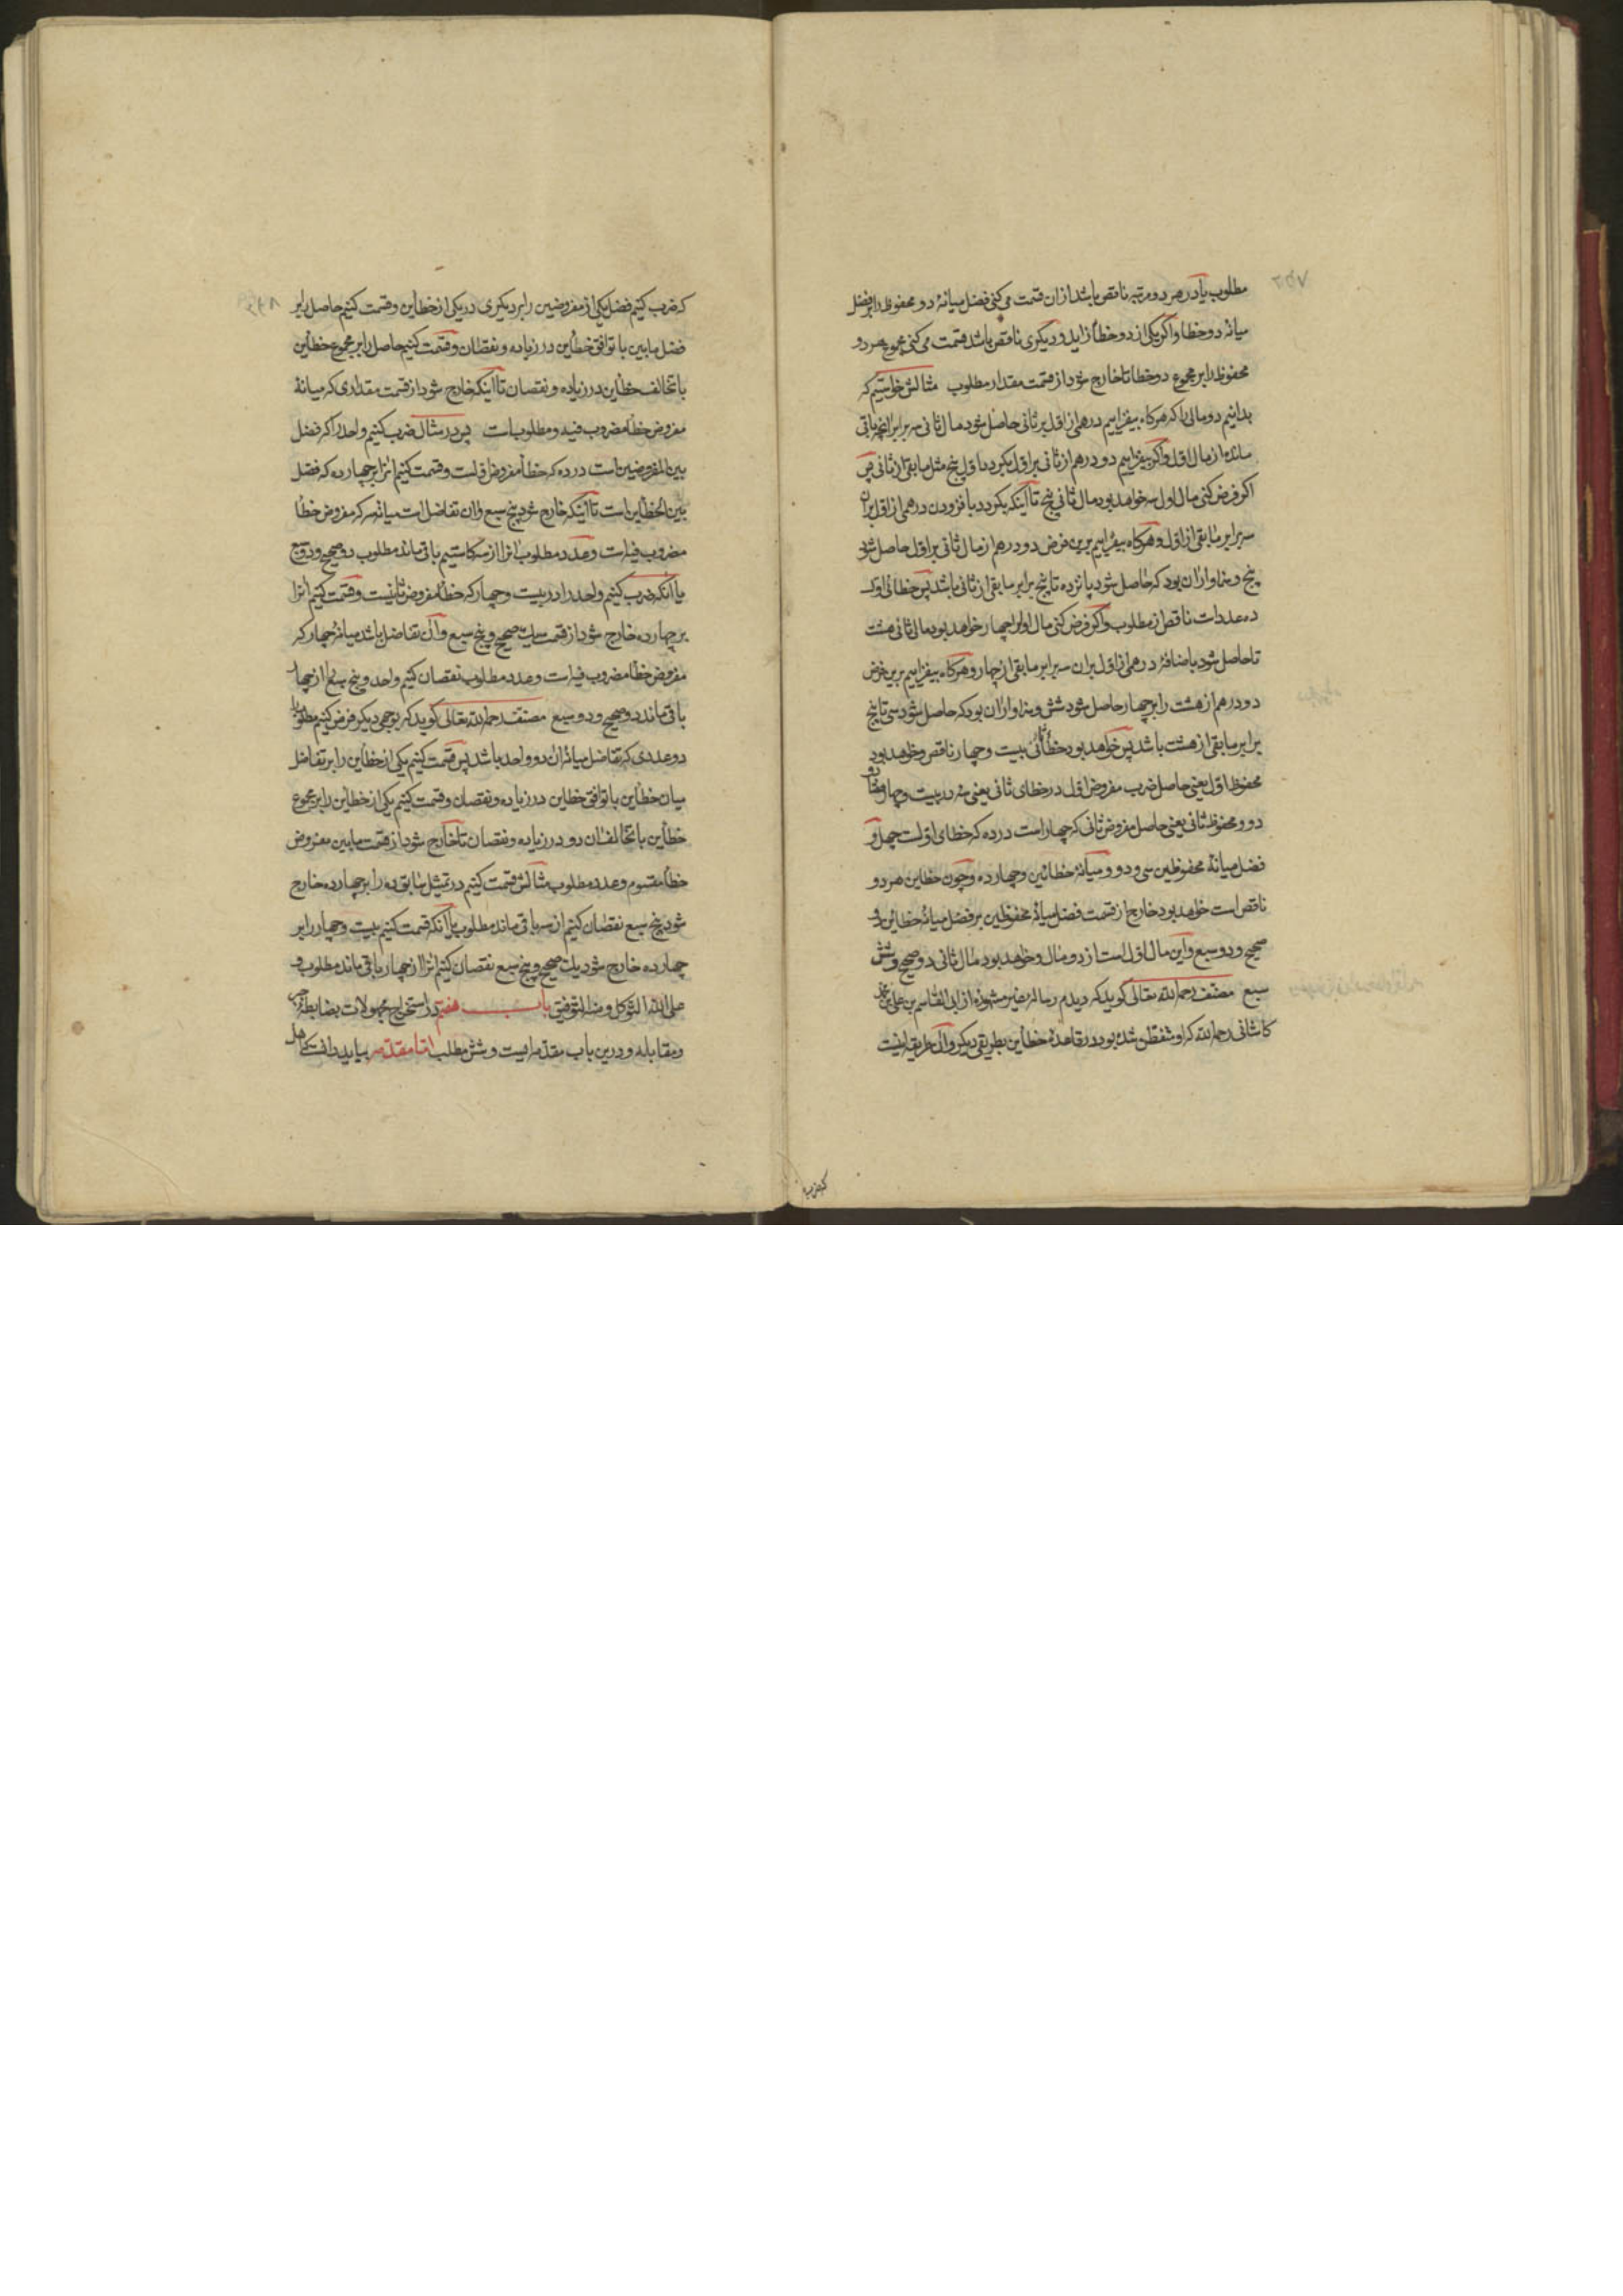 مطلوب یا در هر دو مرتبه ناقص باشد ازان قسمت می کنی فضل میانهٔ دو محفوظ را بر فضل
میانهٔ دو خطا و اگر یکی از دو خطا زاید و دیگری ناقص باشد قسمت می کنی مجموع هر دو
محفوظ را بر مجموع دو خطا تا خارج شود از قسمت مقدار مطلوب مثالش خواستیم که
بدانیم دو مالی را که هرکاه بیفزاییم درهمی از اول بر ثانی حاصل شود مال ثانی سه برابر آنچه باقی
مانده از مال اول و اگر بیفزاییم دو درهم از ثانی بر اول بکردد اول پنج مثل مابقی از ثانی پس
اگر فرض کنی مال اول سه خواهد بود مال ثانی پنج تا آنکه بکردد با فزودن درهمی از اول بران
سه برابر مابقی از اول و هرکاه بیفزاییم برین فرض دو درهم از مال ثانی بر اول حاصل شود
پنج و سزاوار آن بود که حاصل شود پانزده تا پنج برابر مابقی از ثانی باشد پس خطای اول
ده عدد است ناقص از مطلوب و اگر فرض کنی مال اول را چهار خواهد بود مال ثانی هشت
تا حاصل شود باضافهٔ درهمی از اول بران سه برابر مابقی از چهار و هرکاه بیفزاییم برین فرض
دو درهم از هشت را بر چهار حاصل شود شش و سزاوار آن بود که حاصل شود سی تا پنج
برابر مابقی از هشت باشد پس خواهد بود خطای ثانی بیست و چهار ناقص و خواهد بود
محفوظ اول یعنی حاصل ضرب مفروض اول در خطای ثانی یعنی سه در بیست و چهار هفتاد و
دو و محفوظ ثانی یعنی حاصل مفروض ثانی که چهار است در ده که خطای اولست چهل و
فضل میانهٔ محفوظین سی و دو و میانهٔ خطائین چهارده و چون خطاین هر دو
ناقص است خواهد بود خارج از قسمت فضل میانهٔ محفوظین بر فضل میانهٔ خطائین دو
صحیح و دو سبع و این مال اول است از دو مال و خواهد بود مال ثانی دو صحیح و شش
سبع مصنف رحمه الله تعالی کوید که دیدم رسالهٔ غیر مشهوره از ابی القاسم بن علی بن محمد
کاشانی رحمه الله که او متفطن شده بود در قاعدهٔ خطأین بطریقی دیکر و آن طریقه اینست
که ضرب
که ضرب کنیم فضل یکی از مفروضین را بر دیکری در یکی از خطأین و قسمت کنیم حاصل را بر
فضل مابین با توافق خطأین در زیاده و نقصان و قسمت کنیم حاصل را بر مجموع خطأین
با تخالف خطأین در زیاده و نقصان تا آنکه خارج شود از قسمت مقداری که میانهٔ
مفروض خطأ مضروب فیه و مطلوب است پس در مثال ضرب کنیم واحد را که فضل
بین المفروضین است در ده که خطأ مفروض اولست و قسمت کنیم آنرا بر چهارده که فضل
بین الخطأین است تا آنکه خارج شود پنج سبع و آن تفاضل است میانه سه که مفروض خطأ
مضروب فیه است و عدد مطلوب آنرا از سه کاستیم باقی ماند مطلوب دو صحیح و دو سبع
یا آنکه ضرب کنیم واحد را در بیست و چهار که خطأ مفروض ثانیست و قسمت کنیم آنرا
بر چهارده خارج شود از قسمت یک صحیح و پنج سبع و آن تفاضل باشد میانهٔ چهار که
مفروض خطأ مضروب فیه است و عدد مطلوب نقصان کنیم واحد و پنج سبع را از چهار
باقی ماند دو صحیح و دو سبع مصنف رحمه الله تعالی کوید که بوجهی دیکر فرض کنیم مطلوب را
دو عددی که تفاضل میانهٔ آن دو واحد باشد پس قسمت کنیم یکی از خطأین را بر تفاضل
میان خطأین با توافق خطأین در زیاده و نقصان و قسمت کنیم یکی از خطأین را بر مجموع
خطأین با تخالف آن دو در زیاده و نقصان تا خارج شود از قسمت مابین مفروض
خطأ مقسوم و عدد مطلوب مثالش قسمت کنیم در تمثیل سابق ده را بر چهارده خارج
شود پنج سبع نقصان کنیم از سه باقی ماند مطلوب یا آنکه قسمت کنیم بیست و چهار را بر
چهارده خارج شود یک صحیح و پنج سبع نقصان کنیم آنرا از چهار باقی ماند مطلوب و
علی الله التوکل و منه التوفیق باب هفتم در استخراج مجهولات بضابطهٔ جبر
و مقابله و درین باب مقدمه ایست و شش مطلب اما مقدمه بباید دانست که